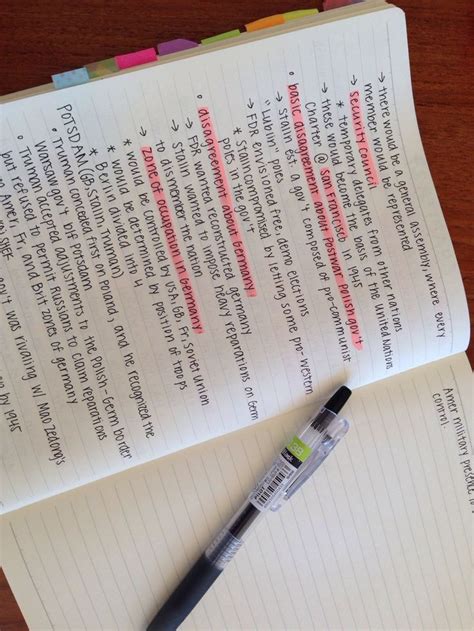 → there would be a general assembly, where every
member would be represented
→ Security Council
* temporary delegates from other nations
→ these would become the basis of the United Nations
Charter @ San Francisco in 1945
• basic disagreement about postwar Polish gov't
→ Stalin est. a gov't composed of pro-communist
"Lublin" poles
→ FDR envisioned free, demo elections
* Stalin compromised by letting some pro-western
poles in the gov't
• disagreement about Germany
→ FDR wanted reconstructed germany
→ Stalin wanted to impose heavy reparations on Germ
to dismember the nation
→ zone of occupation in Germany
* would be controlled by USA, GB, Fr, Soviet union
* would be determined by position of troops
Berlin divided into 4
POTSDAM (GB, Stalin, Truman)
• Truman conceded first on Poland, and he recognized the
Warsaw gov't b/f Potsdam
• Truman accepted adjustments to the Polish-Germ border
but refused to permit Russians to claim reparations
Amer, Fr, and Brit zones of germany
gov't was rivaling w/ Mao Zedong's
by 1945
Amer military presence
control.
PILOT